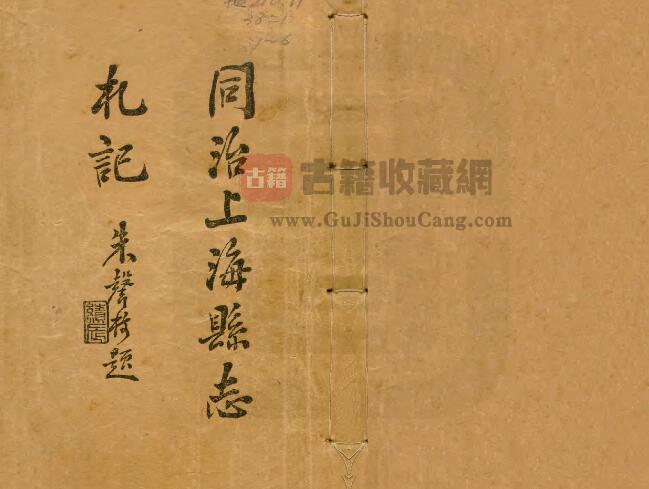 同治上海縣志
札記
朱聲樹題
古籍
古籍收藏網
www.GuJiShouCang.com